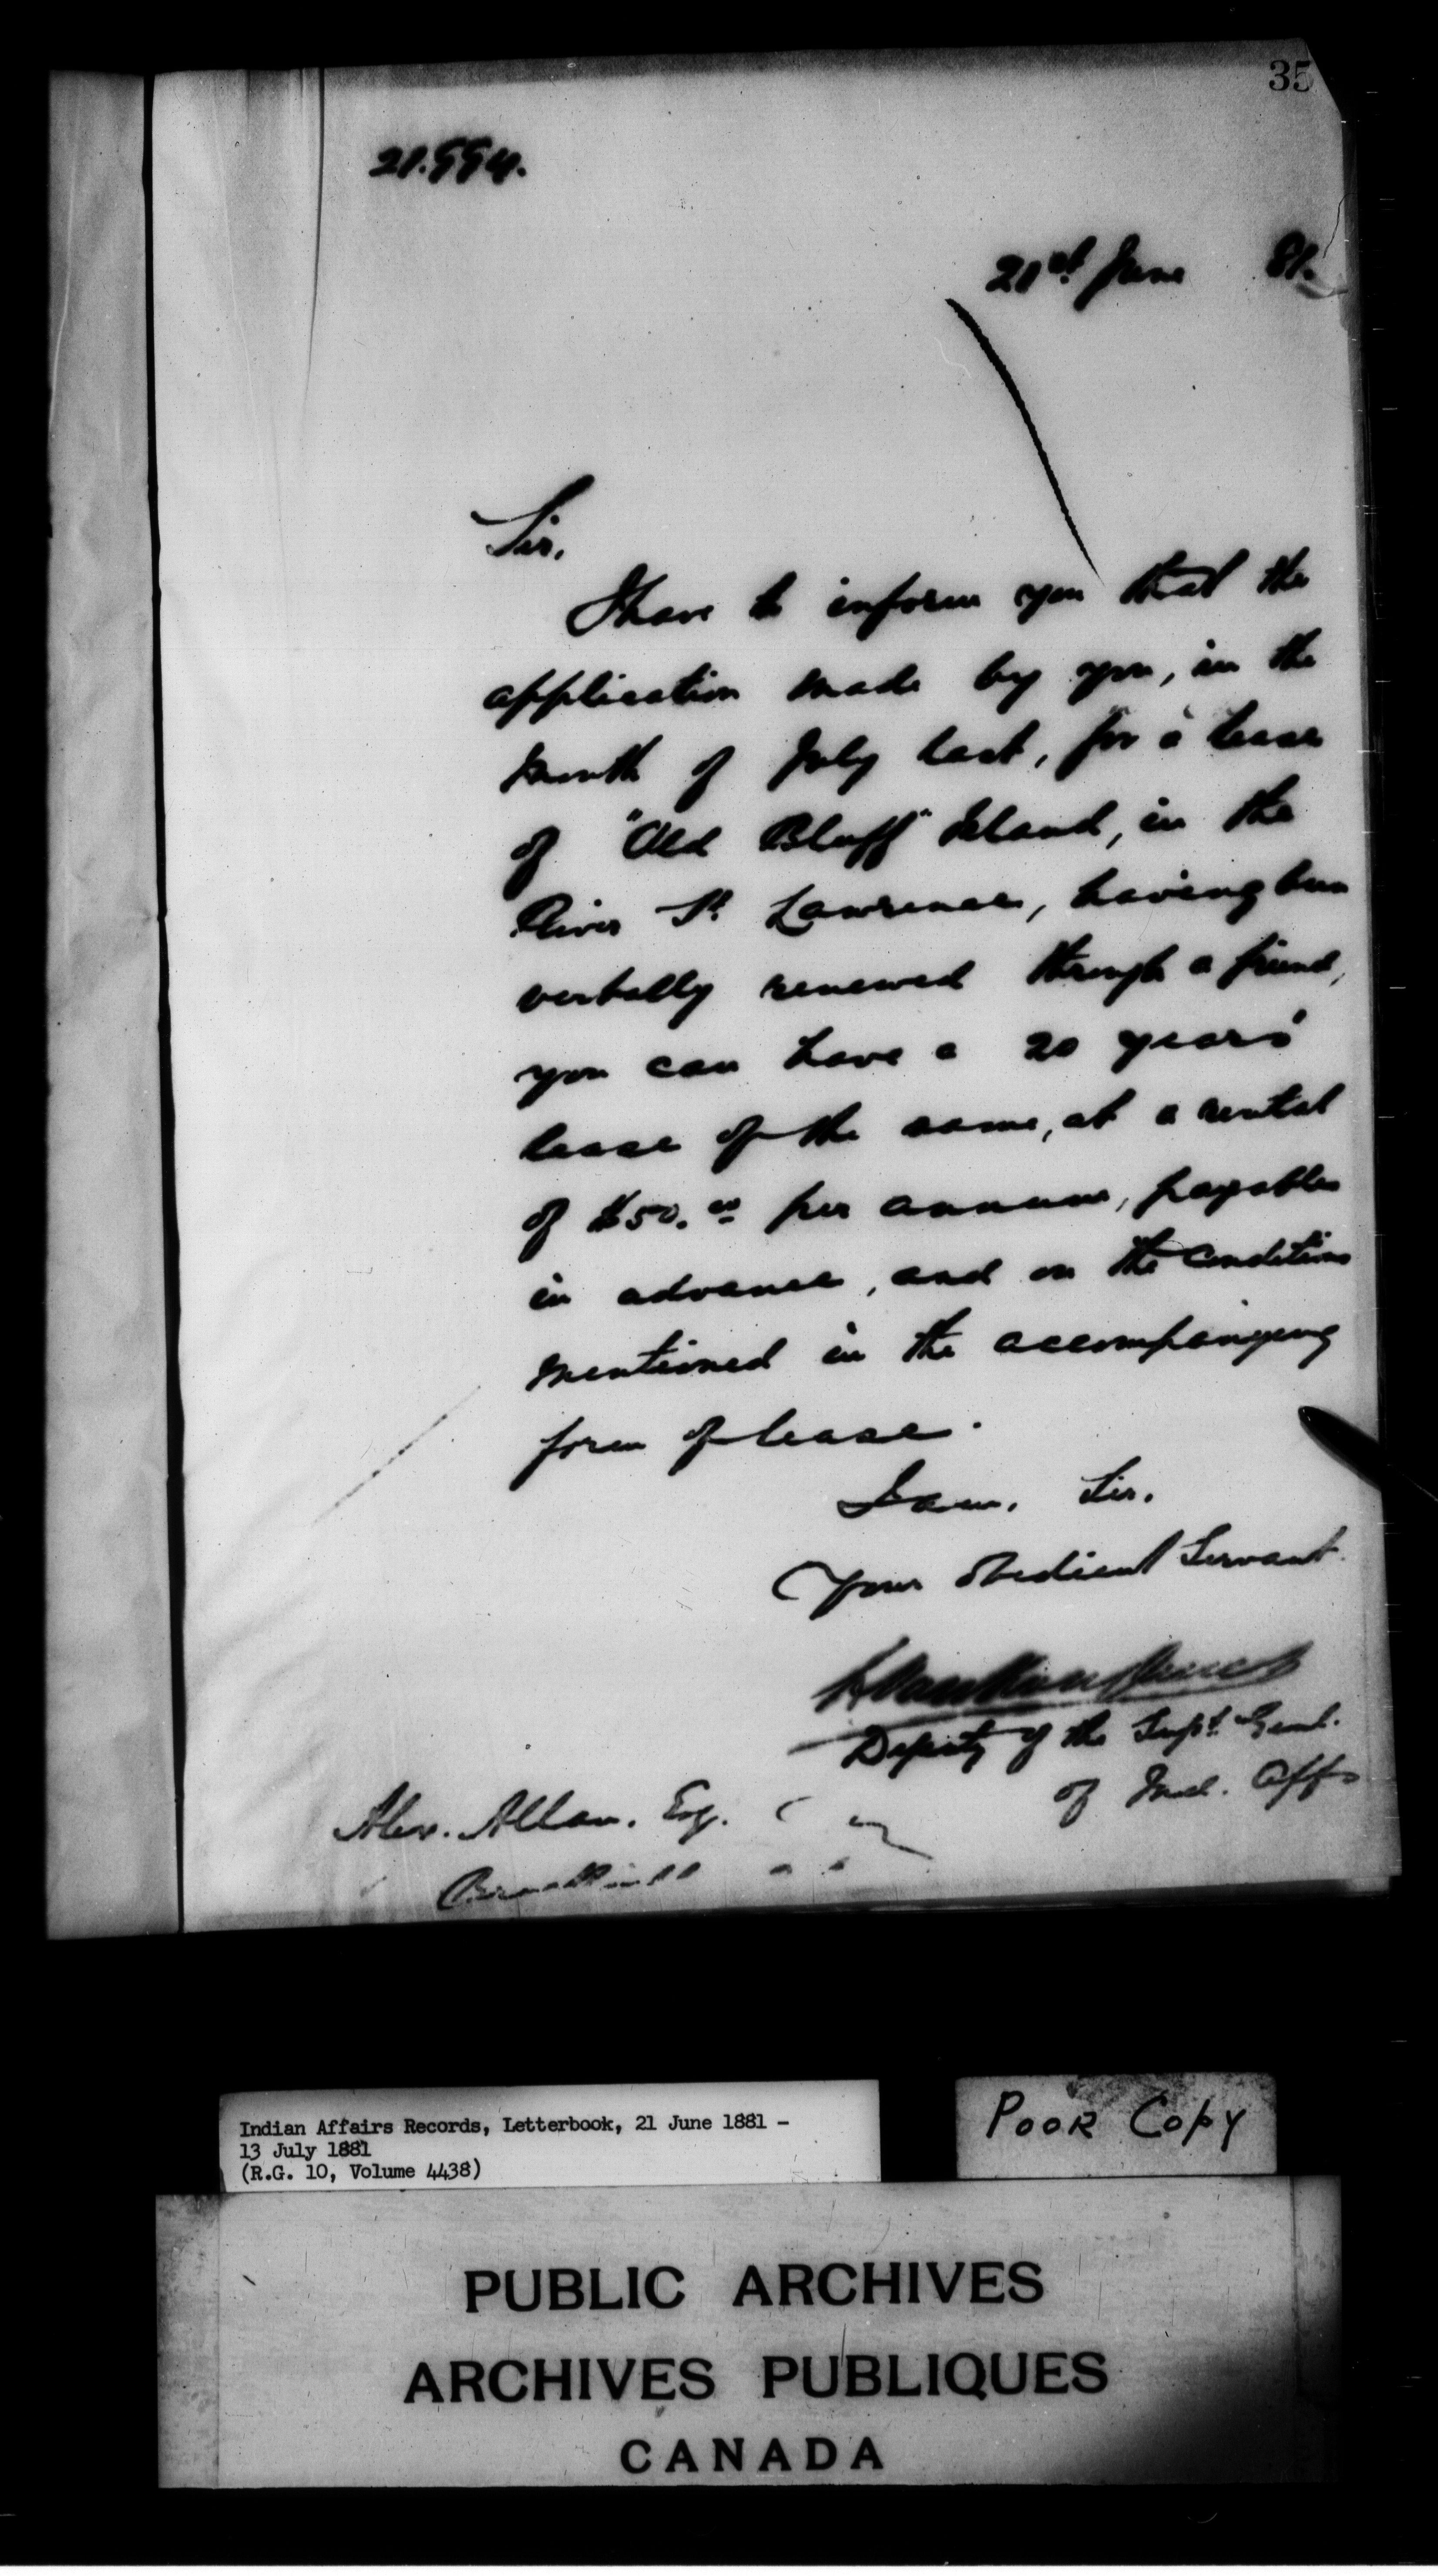 35
21st June 81.
Sir,
I have to inform you that the
application made by you, in the
month of July last, for a lease
of "Old Bluff" Island, in the
River St Lawrence, having been
verbally renewed through a friend,
you can have a 20 years'
lease of the same, at a rental
of $50.00 per annum, payable
in advance, and on the conditions
mentioned in the accompanying
form of lease.
I am, Sir.
Your obedient Servant.
Deputy of the Supt. Genl.
of Ind. Affs
Alex. Allan. Esq.
Indian Affairs Records, Letterbook, 21 June 1881 -
13 July 1881
(R.G. 10, Volume 4438)
Poor Copy
PUBLIC ARCHIVES
ARCHIVES PUBLIQUES
CANADA